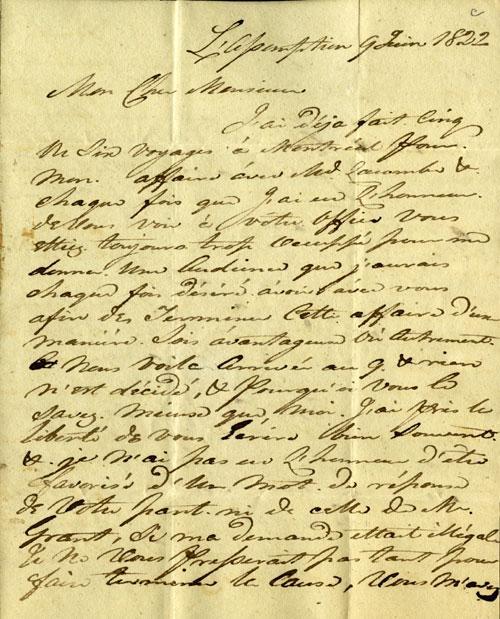 L'Assomption 9 Juin 1822
Mon Cher Monsieur
J'ai déja fait Cinq
ou Six voyages à Montréal Pour
Mon affaire avec Md Lacombe &
chaque fois que J'ai eu L'honneur
de Vous voir à votre Office Vous
étiez toujours trop occuppé pour me
donner Une Audience que j'aurais
chaque fois désiré avoir avec vous
afin de Terminer Cette affaire d'une
manière Soit avantageuse Où Autrement.
& Nous voila Arrivée au 9. & rien
n'est décidé, & Pourquoi vous le
savez mieux que moi. J'ai pris la
liberté de vous Ecrire bien Souvent
& je n'ai pas eu L'honneur d'être
favorisé d'Un Mot de réponse
de Votre part ni de celle de Mr
Grant, Si ma demande était illégal
Je ne Vous Presserait pas tant pour
faire terminer la Cause, Vous M'avez